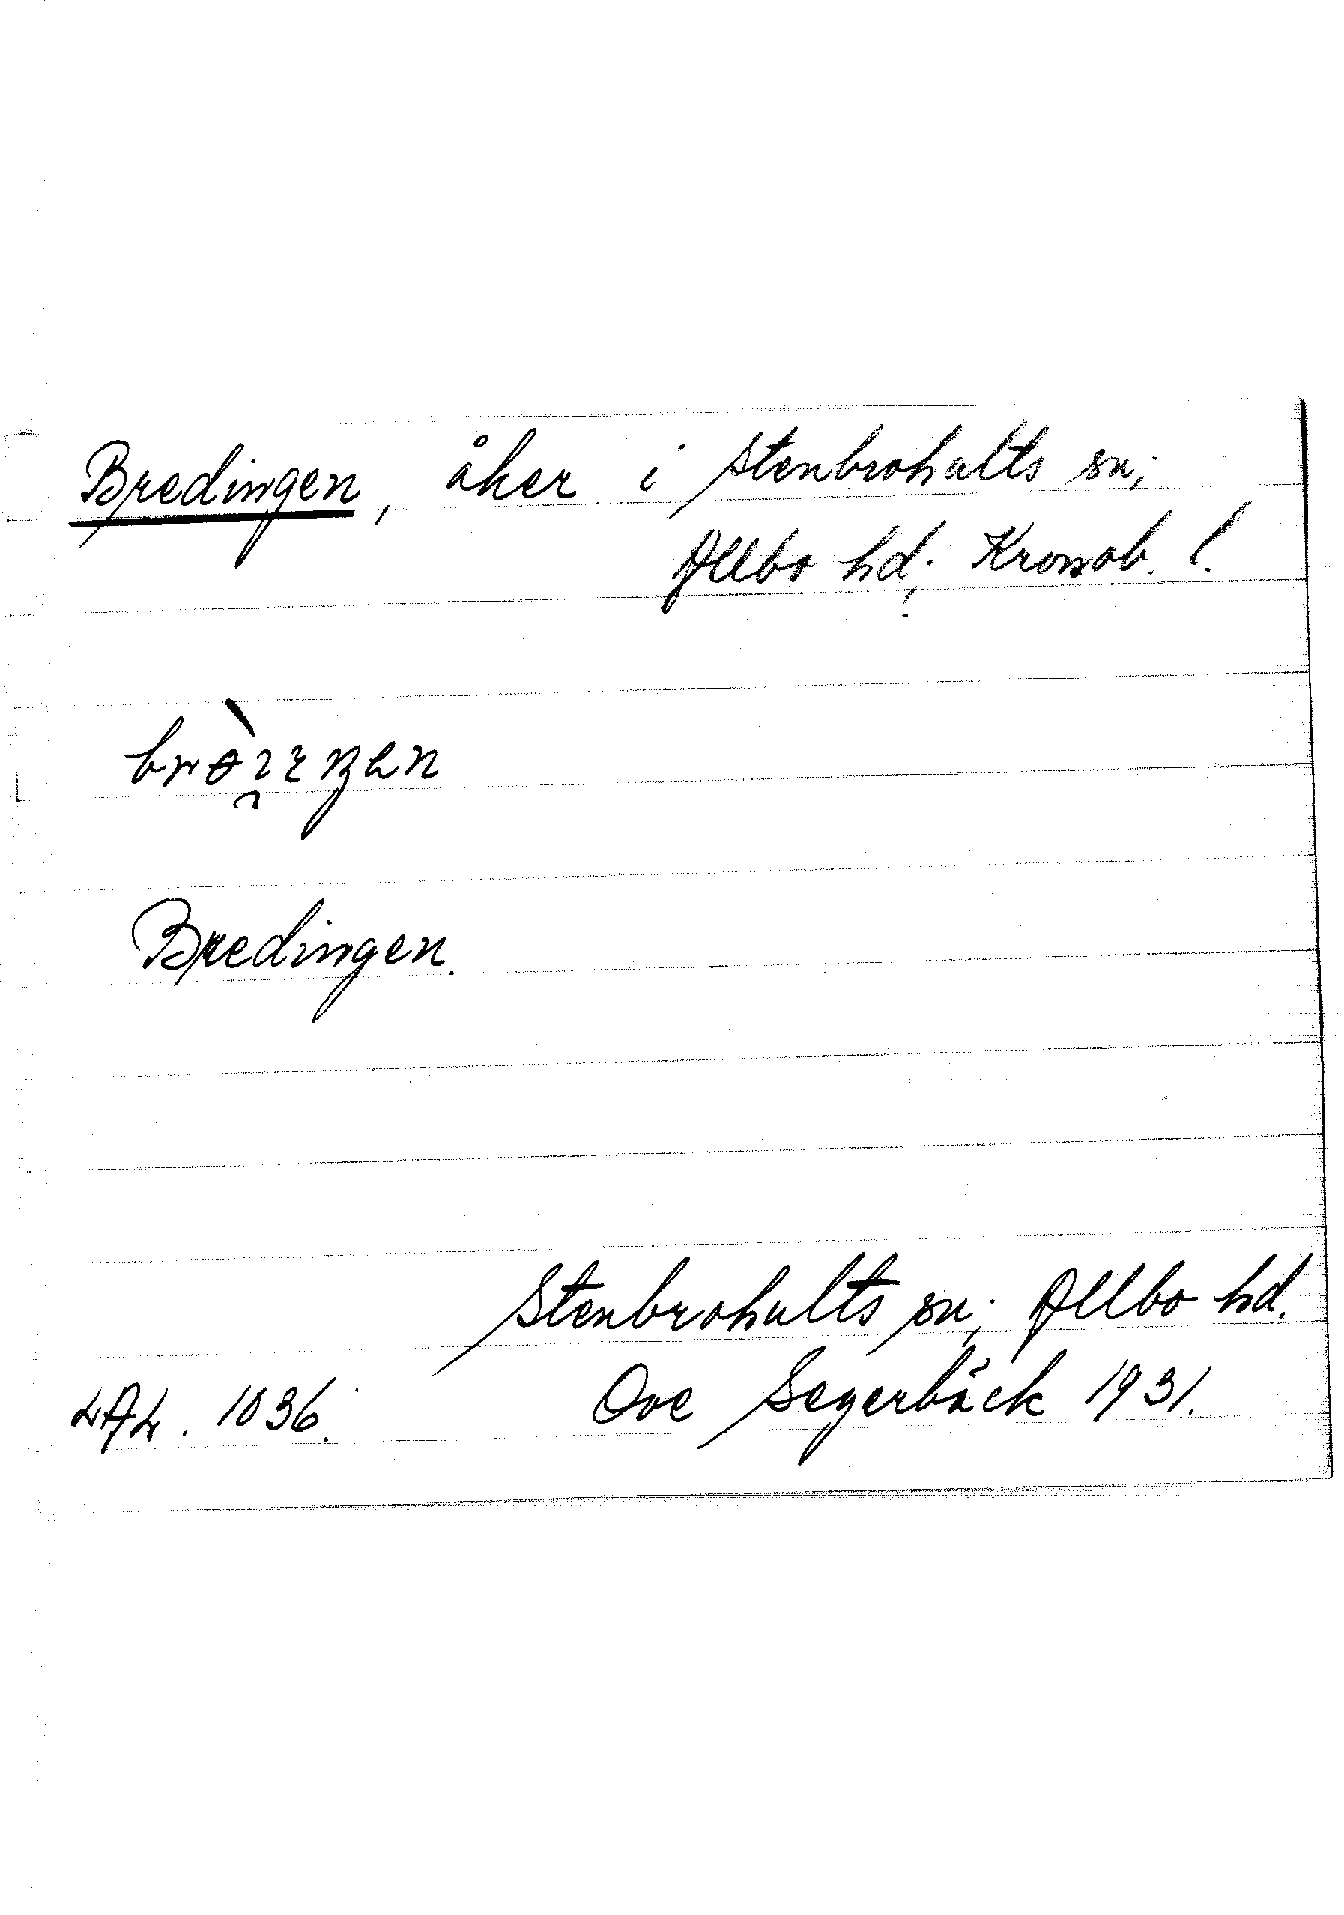 Bredingen, åker i Stenbrohults sn;
Allbo hd; Kronob. l.
Bredingen.
Stenbrohults sn; Allbo hd.
LAL. 1036. Ove Segerbäck 1931.